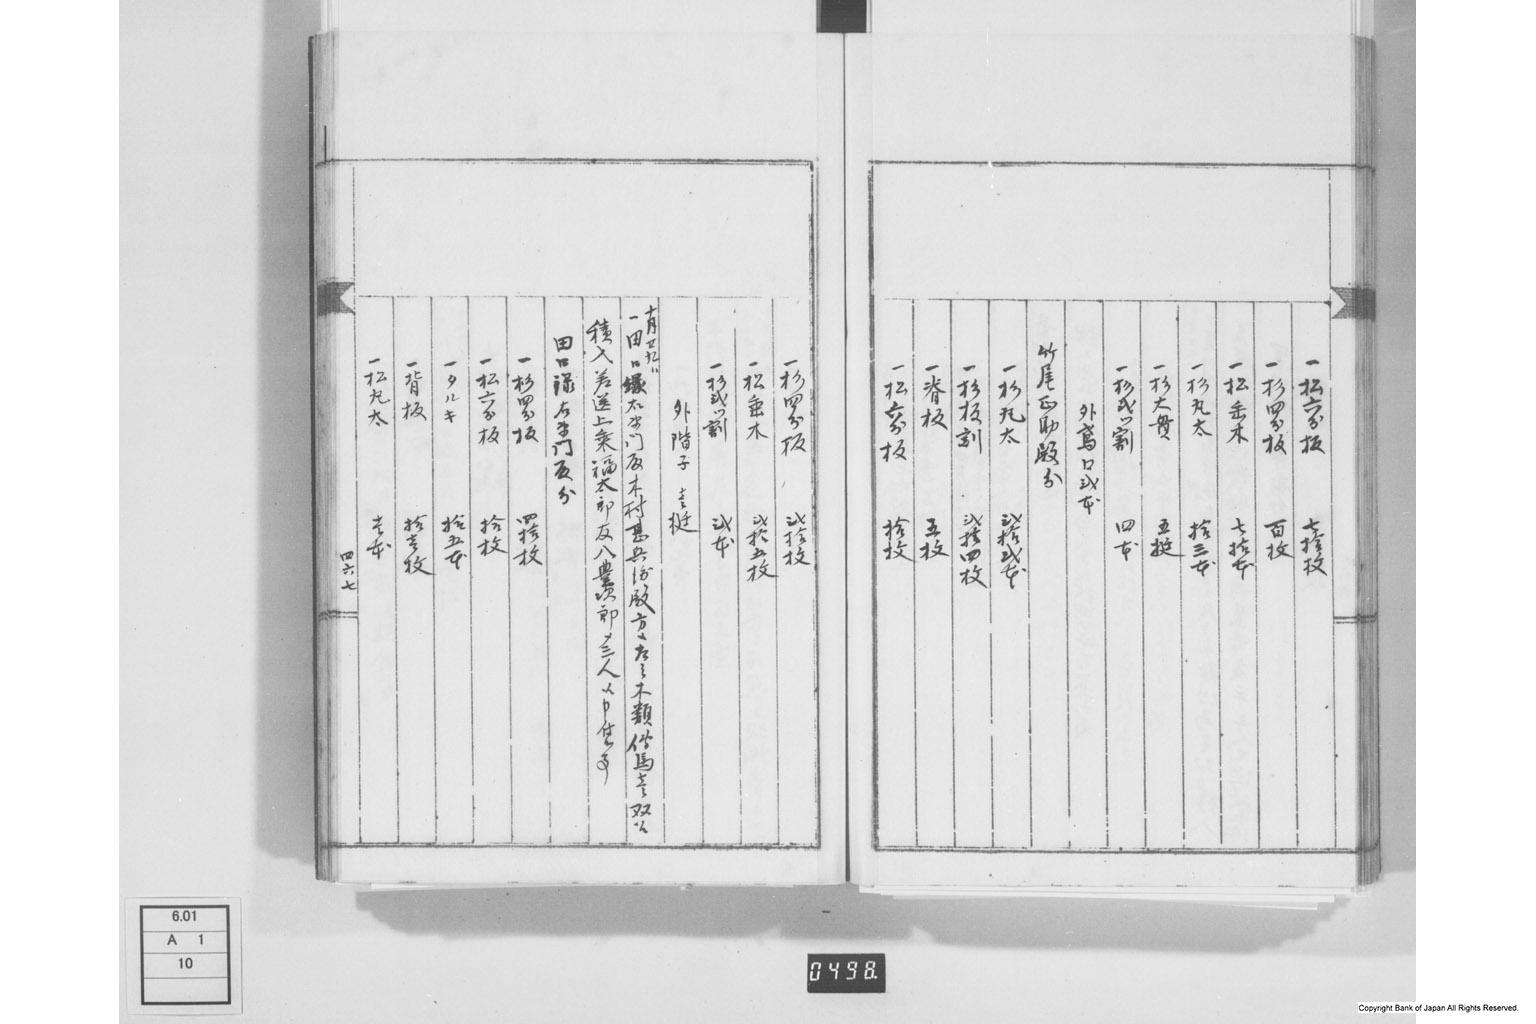 一松六分板　七拾枚
一杉四分板　百枚
一松垂木　七拾本
一杉丸太　拾三本
一杉大貫　五挺
一杉弐ツ割　四本
外鳶口弐本
竹尾正助殿分
一杉丸太　弐拾弐本
一杉板割　弐拾四枚
一脊板　五枚
一松六分板　拾枚
一杉四分板　弐拾枚
一松垂木　弐拾五枚
一杉弐ツ割　弐本
外階子　壱挺
十月廿九日
一田口録右衛門殿木村甚兵衛殿方江左之木類伝馬壱双江
積入差送上乗福太郎友八豊次郎〆三人以申付遣ス
田口録右衛門殿分
一杉四分板　四拾枚
一松六分板　拾枚
一タルキ　拾五本
一背板　拾壱枚
一松丸太　壱本
四六七
6.01
A 1
10
0498.
Copyright Bank of Japan All Rights Reserved.